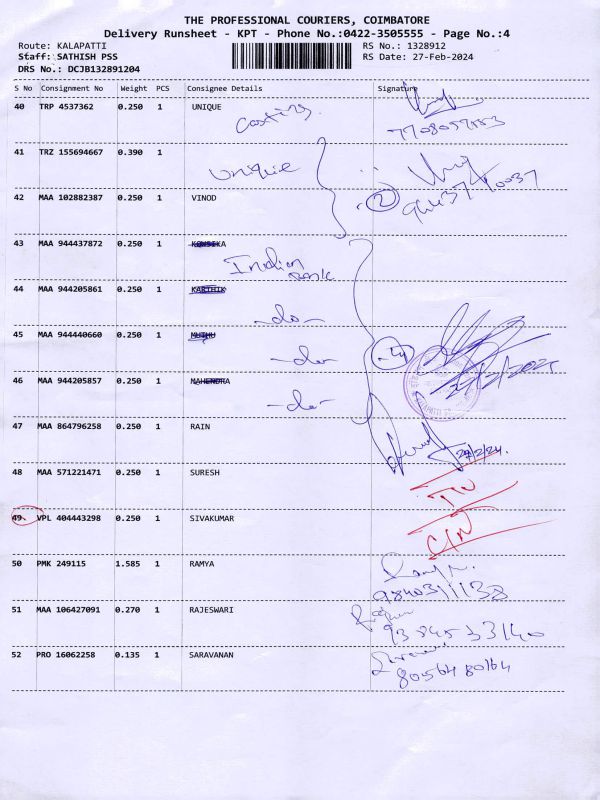 THE PROFESSIONAL COURIERS, COIMBATORE
Delivery Runsheet - KPT - Phone No.:0422-3505555 - Page No.:4
Route: KALAPATTI RS No.: 1328912
Staff: SATHISH PSS RS Date: 27-Feb-2024
DRS No.: DCJB132891204
S No Consignment No Weight PCS Consignee Details Signature
40 TRP 4537362 0.250 1 UNIQUE
7708057153
41 TRZ 155694667 0.390 1
Unique
42 MAA 102882387 0.250 1 VINOD
2
43 MAA 944437872 0.250 1 KOWSIKA
Indian Bank
44 MAA 944205861 0.250 1 KARTHIK
-do-
45 MAA 944440660 0.250 1 MUTHU
-do- 4
46 MAA 944205857 0.250 1 MAHENDRA
-do-
47 MAA 864796258 0.250 1 RAIN
27/2/24.
48 MAA 571221471 0.250 1 SURESH
49 VPL 404443298 0.250 1 SIVAKUMAR
50 PMK 249115 1.585 1 RAMYA
9840311138
51 MAA 106427091 0.270 1 RAJESWARI
52 PRO 16062258 0.135 1 SARAVANAN
8056480164